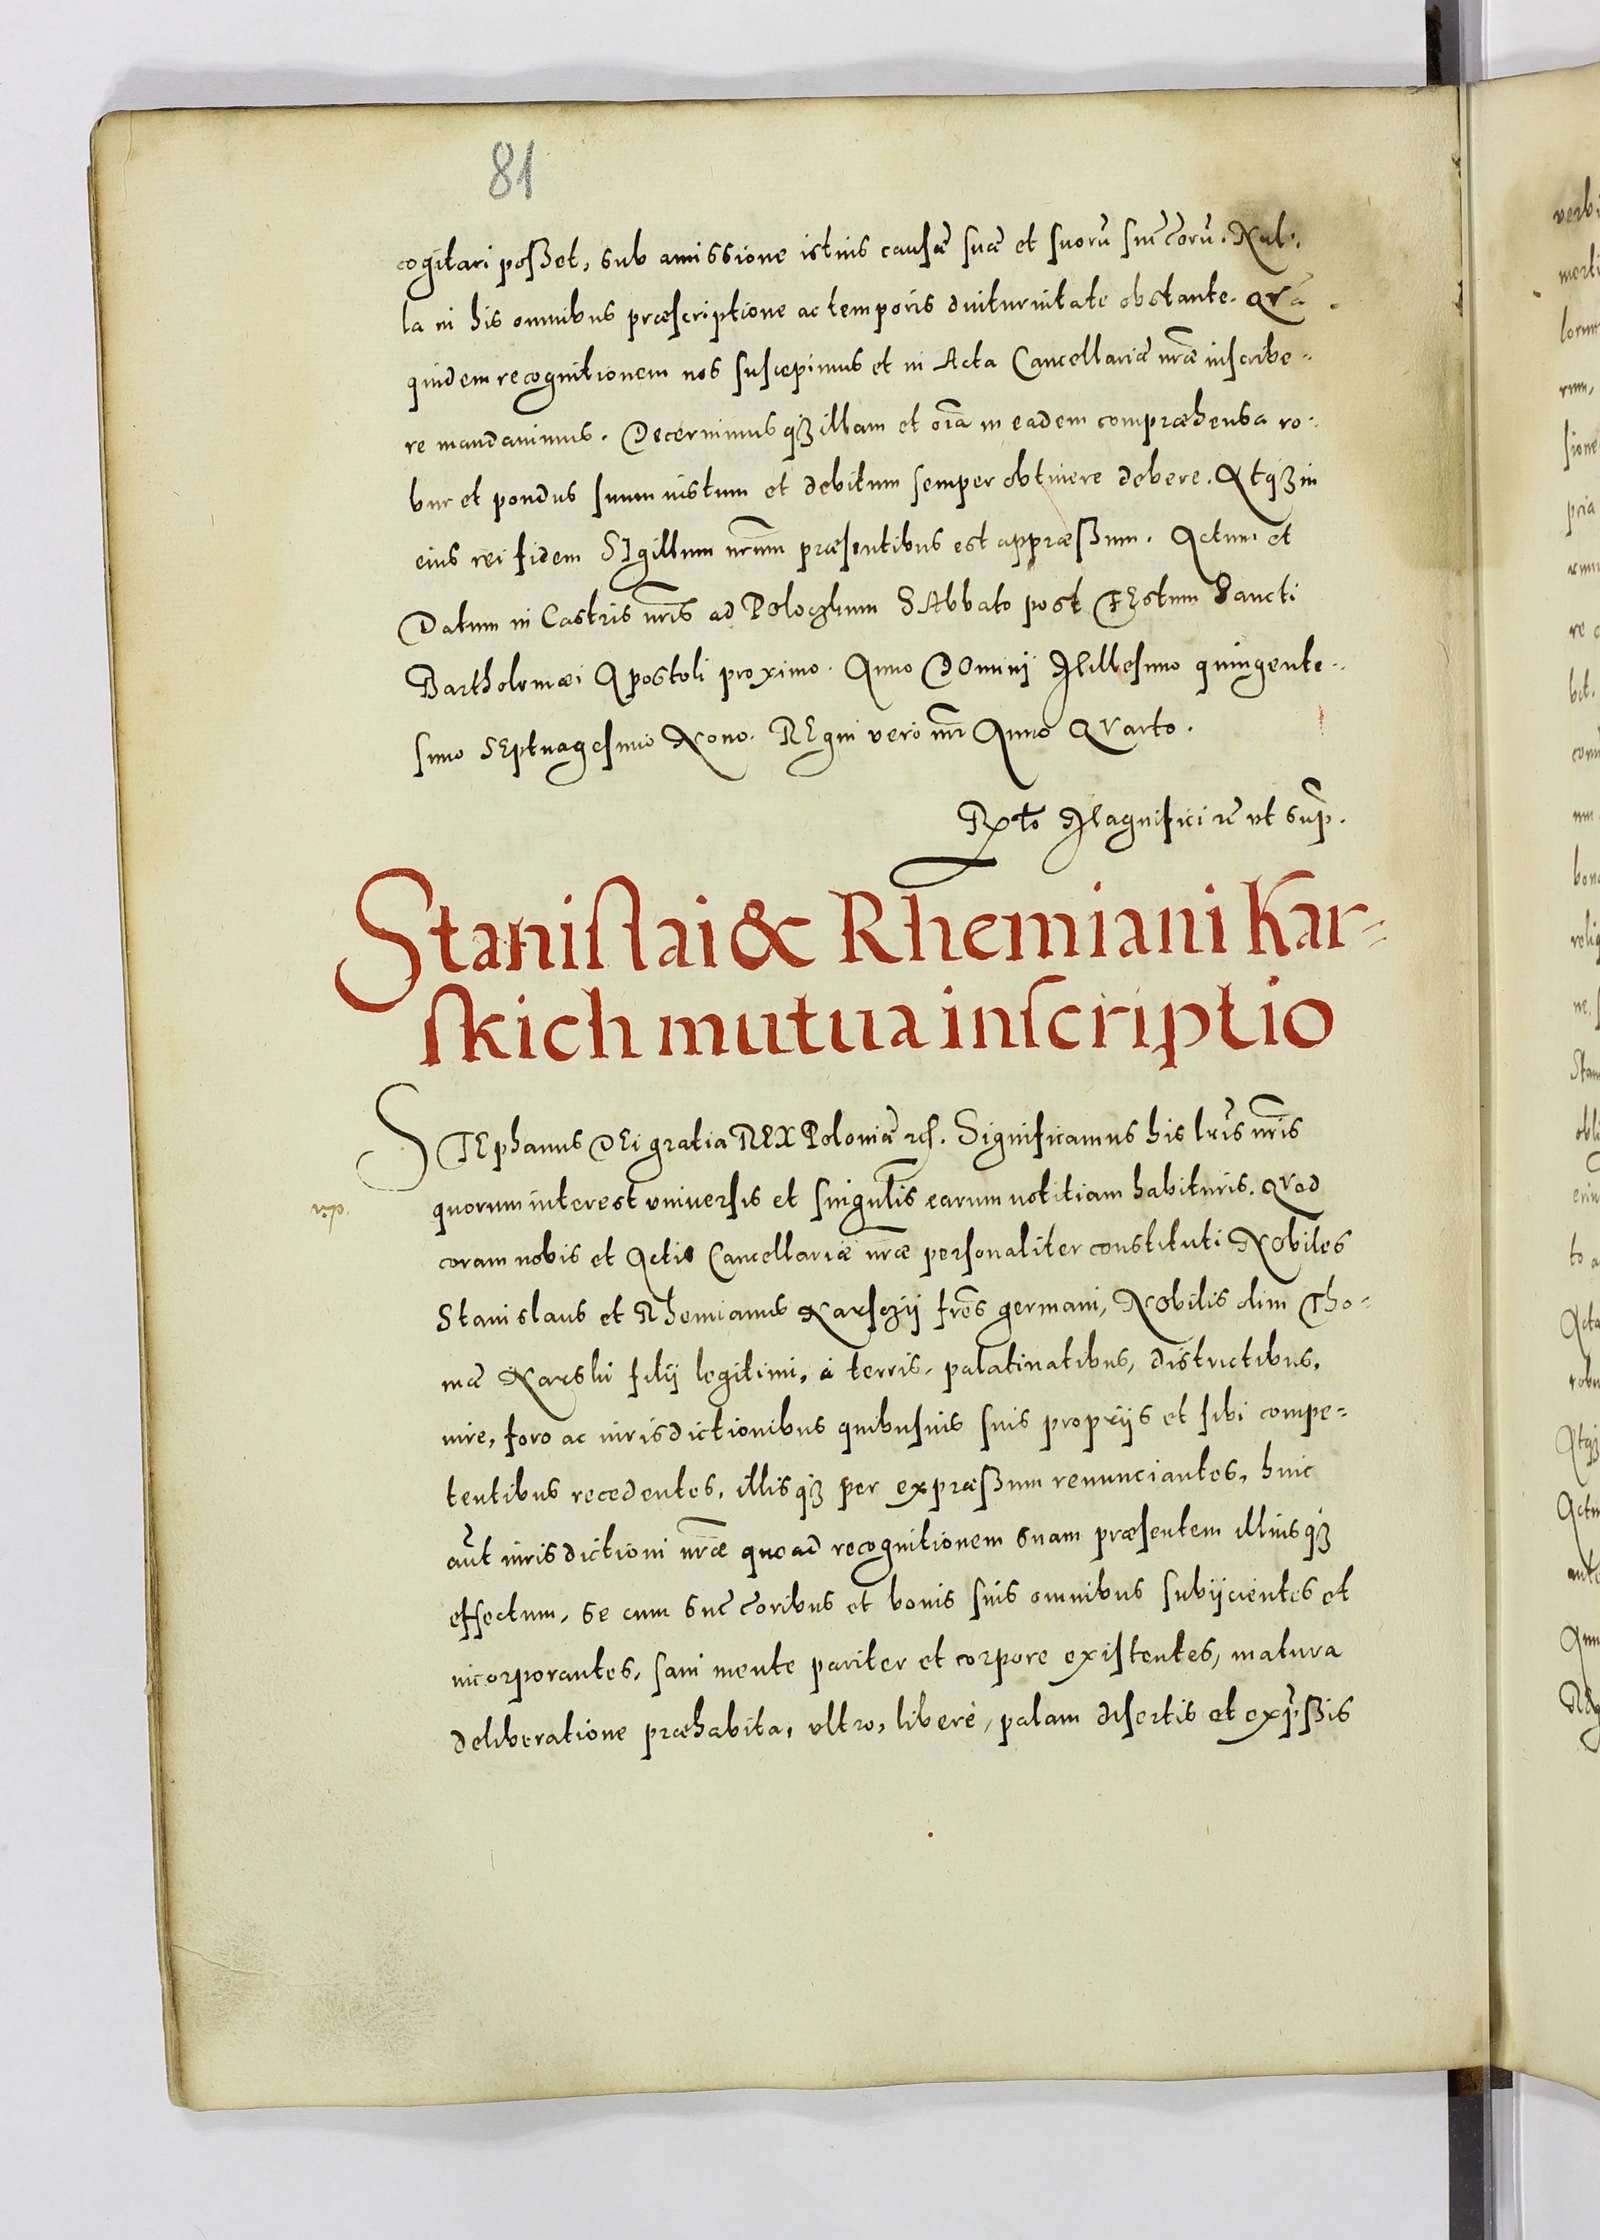 81
cogitari poßet, sub amissione istius causæ suæ et suorũ suc̃c̃orũ. Nul-
la in his omnibus præscriptione ac temporis diuturnitate obstante. Qvã
quidem recognitionem nos suscepimus et in Acta Cancellariæ nr̃æ inscribe-
re mandauimus. Decernimus qȝ illam et oĩa in eadem compræhensa ro-
bur et pondus suum iustum et debitum semper obtinere debere. Atqȝ in
eius rei fidem SIgillum nr̃um præsentibus est appræßum. Actum et
Datum in Castris nr̃is ad Poloczkum SAbbato post FEstum Sancti
Bartholomæi Apostoli proximo. Anno DOminij Millesimo quingente-
simo SEptuagesimo Nono. REgni vero nr̃i Anno QVarto.
Rx̃to Magnifici rc̃ vt sup̃.
Stanislai & Rhemiani Kar-
skich mutua inscriptio
STEphanus DEi gratia REX Poloniæ rc̃. Significamus his lr̃is nr̃is
quorum interest vniuersis et singulis earum notitiam habituris. QVod
coram nobis et Actis Cancellariæ nr̃æ personaliter constituti NObiles
Stanislaus et Rhemianus Karsczÿ fr̃es germani, NObilis olim Tho-
mæ Karski filÿ legitimi, à terris, palatinatibus, districtibus,
iure, foro ac iurisdictionibus quibusuis suis proprÿs et sibi compe-
tentibus recedentes, illisqȝ per expræßum renunciantes, huic
aũt iurisdictioni nr̃æ quoad recognitionem suam præsentem illiusqȝ
effectum, se cum suc̃c̃oribus et bonis suis omnibus subÿcientes et
incorporantes, sani mente pariter et corpore existentes, matura
deliberatione præhabita, vltro, liberè, palam disertis et exp̃ßis